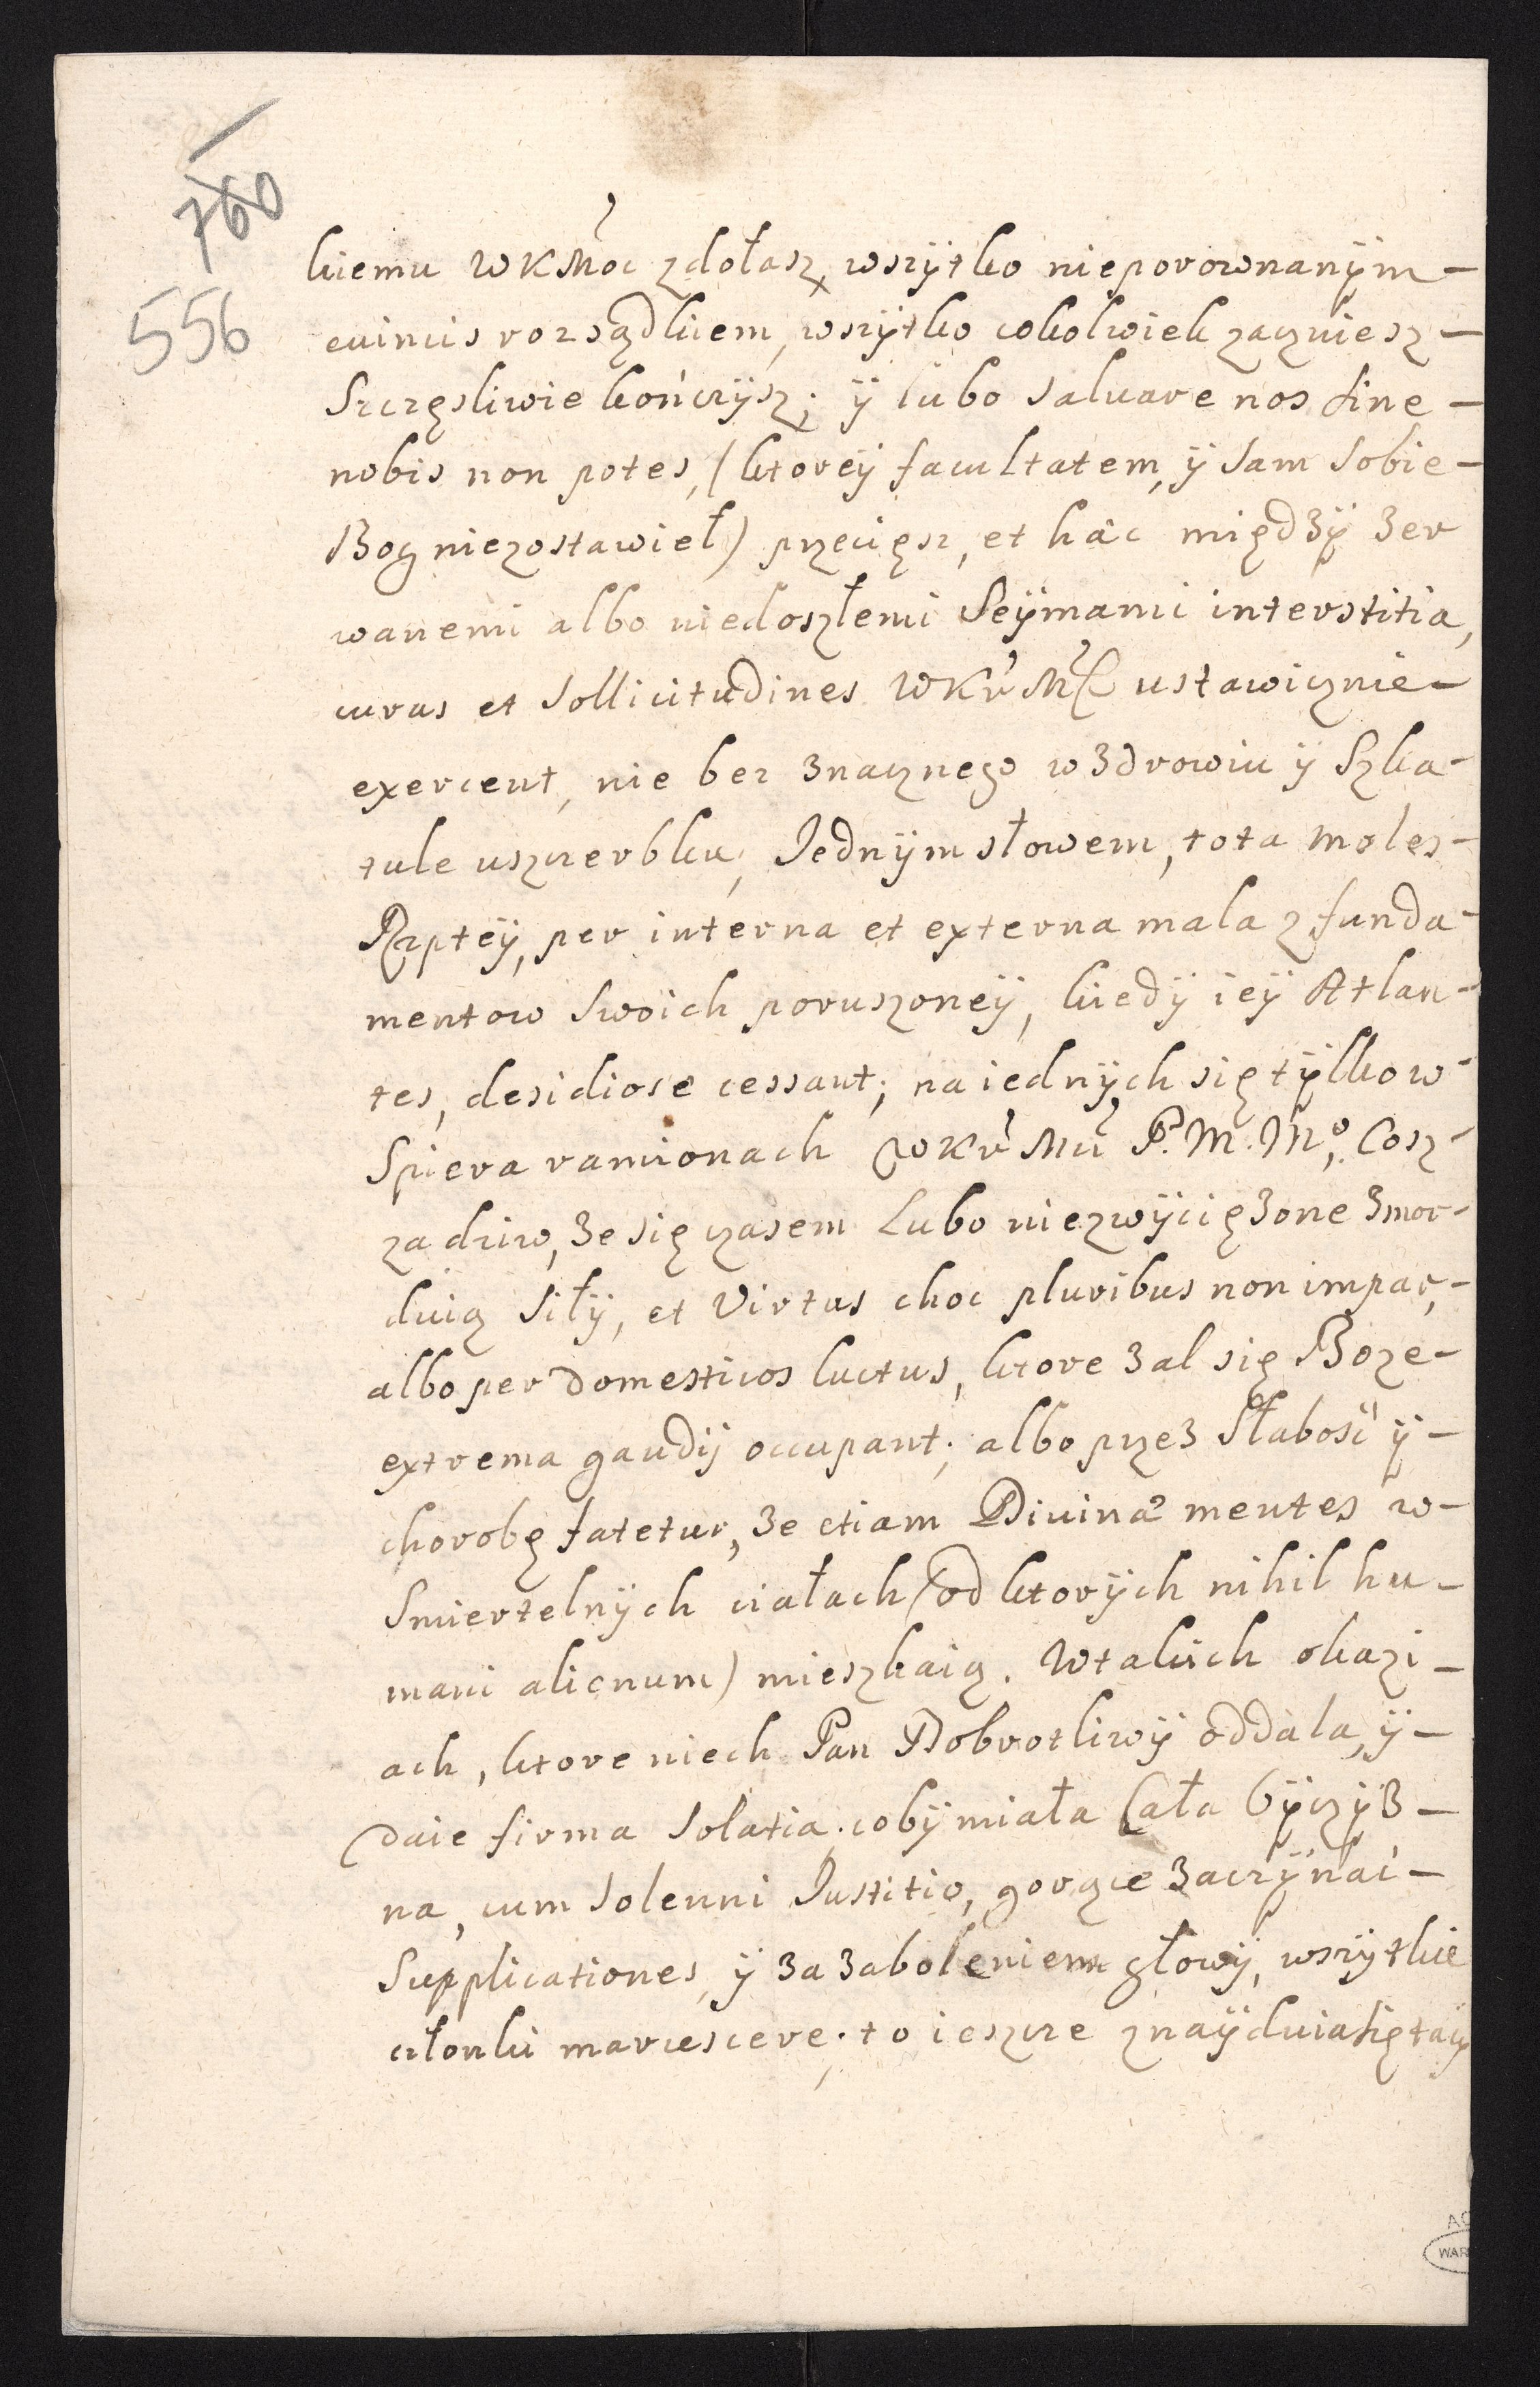 760
556
kiemu WKMoc zdołasz, wszytko nieporownanym-
euincis rozsądkiem, wszytko cokolwiek zaczniesz-
Szczęsliwie kończysz; ÿ lubo saluare nos sine-
nobis non potes, (ktoreÿ facultatem, ÿ sam sobie-
Bog niezostawieł) przecięsz, et hac międzÿ zer
wanemi albo niedoszłemi Seÿmami interstitia,
curas et sollicitudines WKr Mć ustawicznie-
exercent, nie bez znacznego w zdrowiu ÿ Szka-
tule uszczerbku, Jednÿm słowem, tota moles-
Rzpteÿ, per interna et externa mala z funda-
mentow swoich poruszoneÿ, kiedÿ ieÿ Atlan-
tes, desidiose cessant; na iednÿch się tÿlko w-
spiera ramionach WKr Mci P. M. Mo, Cosz-
za dziw, ze się czasem Lubo niezwÿciężone zmor-
duią siłÿ, et Virtus choc pluribus non impar,-
albo per domesticos luctus, ktore zal się Boze-
extrema gaudij occupant; albo przez słabość ÿ-
chorobę fatetur, ze etiam Diuinæ mentes w-
smiertelnÿch ciałach (od ktorÿch nihil hu-
mani alienum) mieszkaią. W takich okazi-
ach, ktore niech Pan Dobrotliwÿ oddala, ÿ-
daie firma solatia. cobÿ miała Cała Oÿczÿz-
na, cum solenni Justitio, gorące zaczÿnać-
Supplicationes, ÿ za zaboleniem głowÿ, wszÿtkie
członki marcescere. to ieszcze znaÿduią się tacÿ
WAR